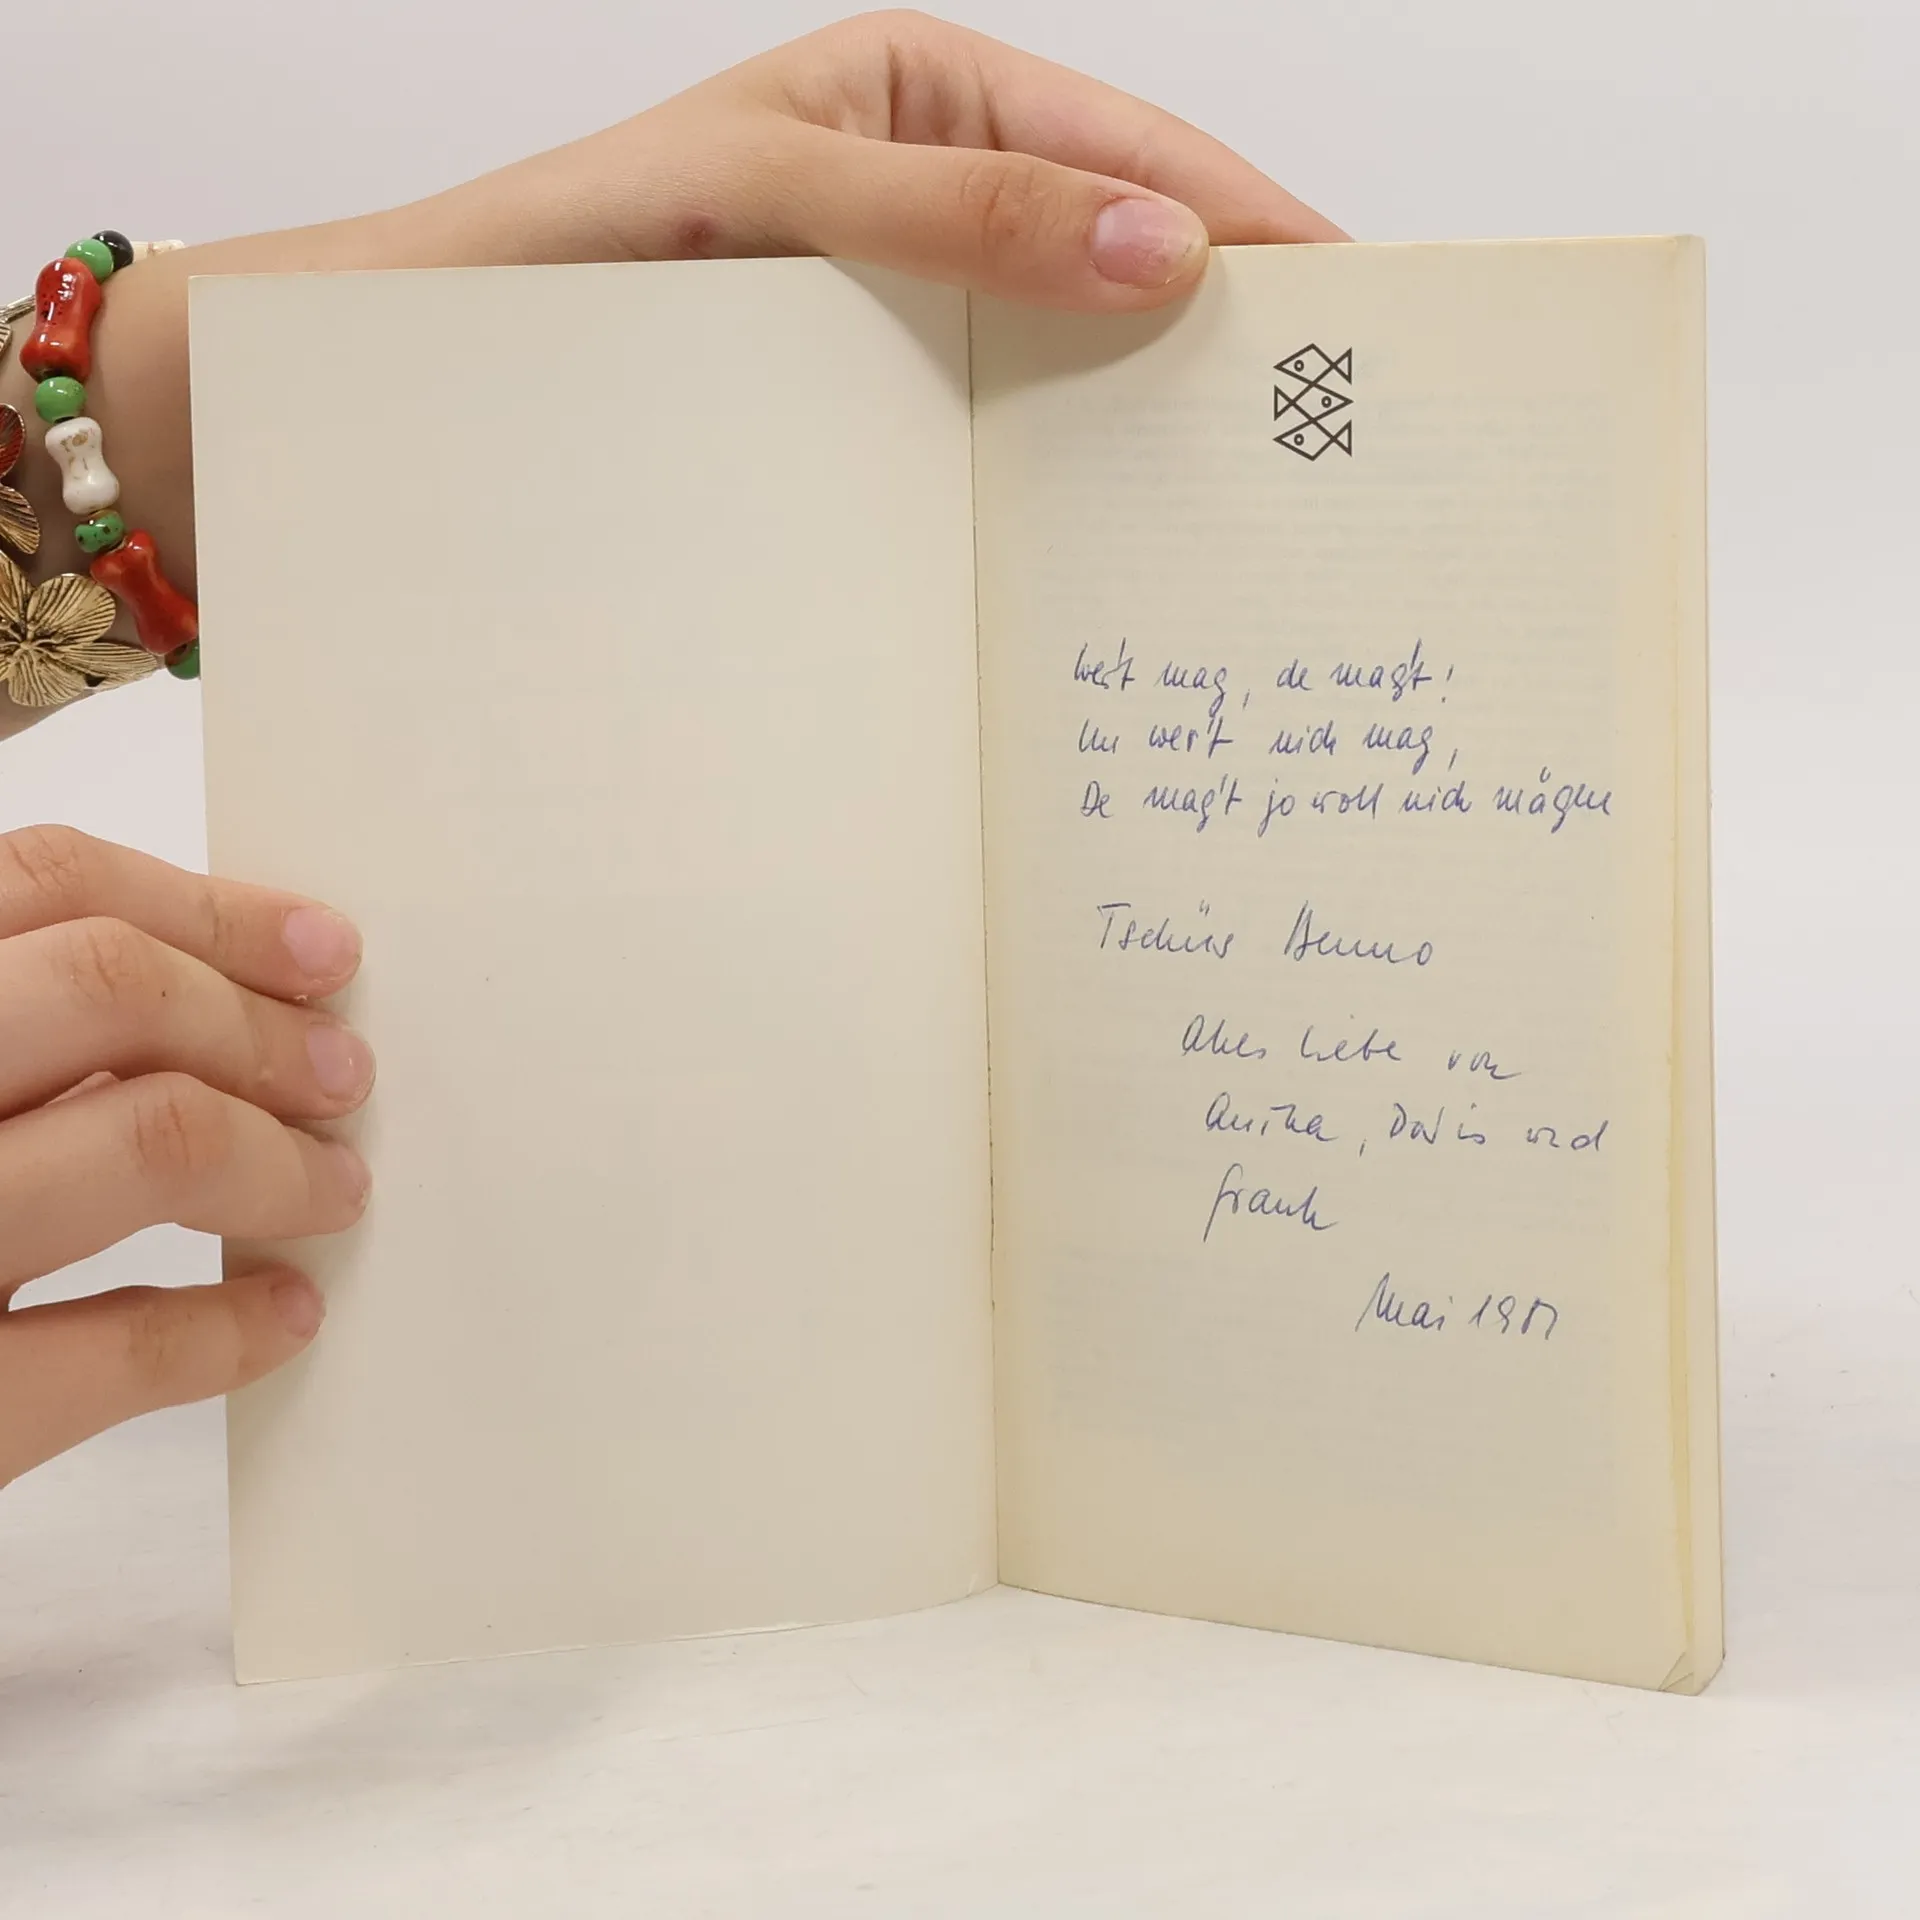 wer't mag, de mag't!
Un wer't nich mag,
De mag't jo woll nich mägen
Tschüss Benno
Alles Liebe von
Anitha, Doris und
Frank
Mai 1981